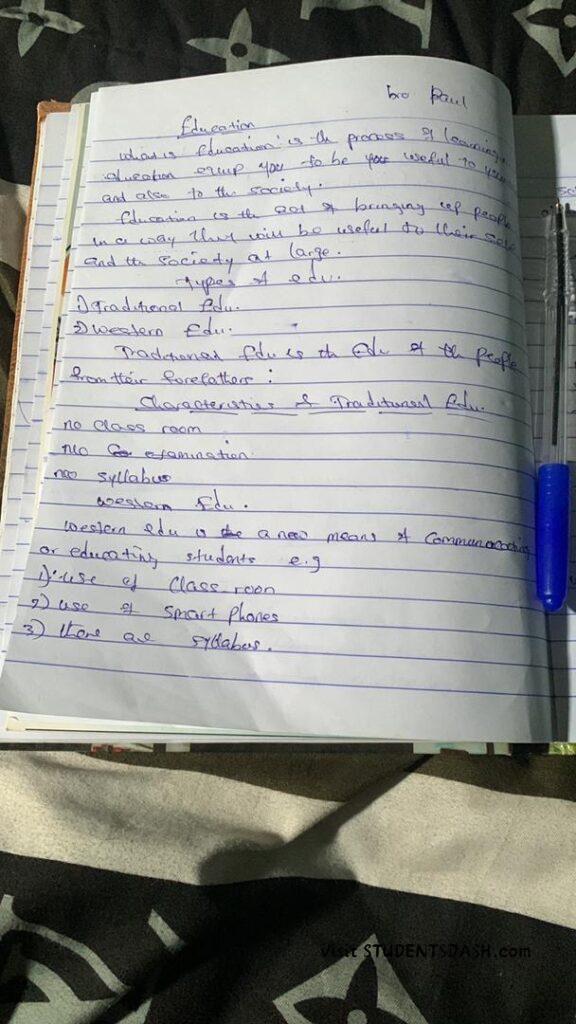 bro Paul
Education
What is Education: is the process of learning
education equip you to be your useful to your
and also to the society.
Education is the act of bringing up people
in a way they will be useful to their self
and the society at large.
Types of edu.
1) Traditional Edu.
2) Western Edu.
Traditional Edu is the Edu of the people
from their forefathers:
Characteristics of Traditional Edu.
no class room
no examination
no syllabus
Western Edu.
Western edu is a new means of
or educating students e.g
1) use of class room
2) use of smart phones
3) there are syllabus.
Visit STUDENTSDASH.com